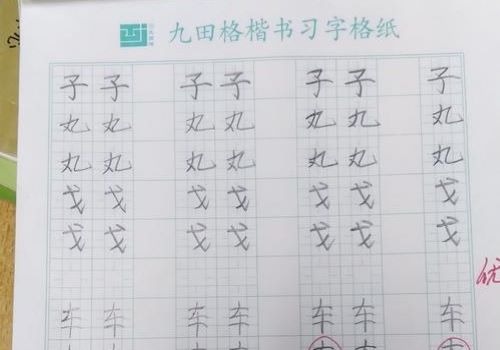 九田格楷书习字格纸
子子 子子 子子 子
丸丸 丸丸 丸丸 丸
丸丸 丸丸 丸丸 丸
戈戈 戈戈 戈戈 戈
戈戈 戈戈 戈戈 戈
优
车车 车车 车车 车